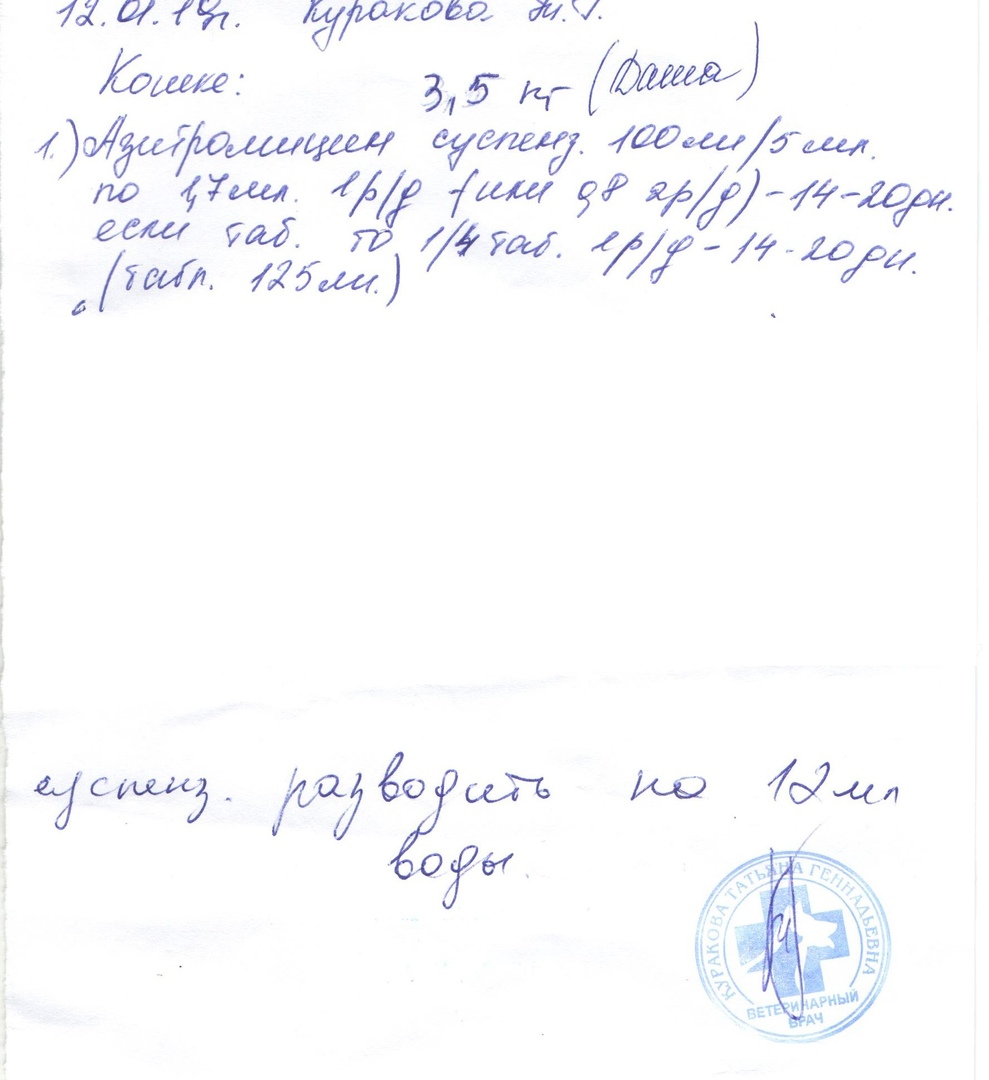 12.01.19г. Куракова Т.Г.
Кошке: 3,5 кг (Даша)
1.) Азитромицин суспенз. 100мг/5мл.
по 1,7мл. 1р/д (или 0,8 2р/д) - 14-20дн.
если таб. то 1/4 таб. 1р/д - 14-20дн.
(табл. 125мг.)
суспенз. разводить на 12мл
воды.
КУРАКОВА ТАТЬЯНА ГЕННАДЬЕВНА
ВЕТЕРИНАРНЫЙ
ВРАЧ